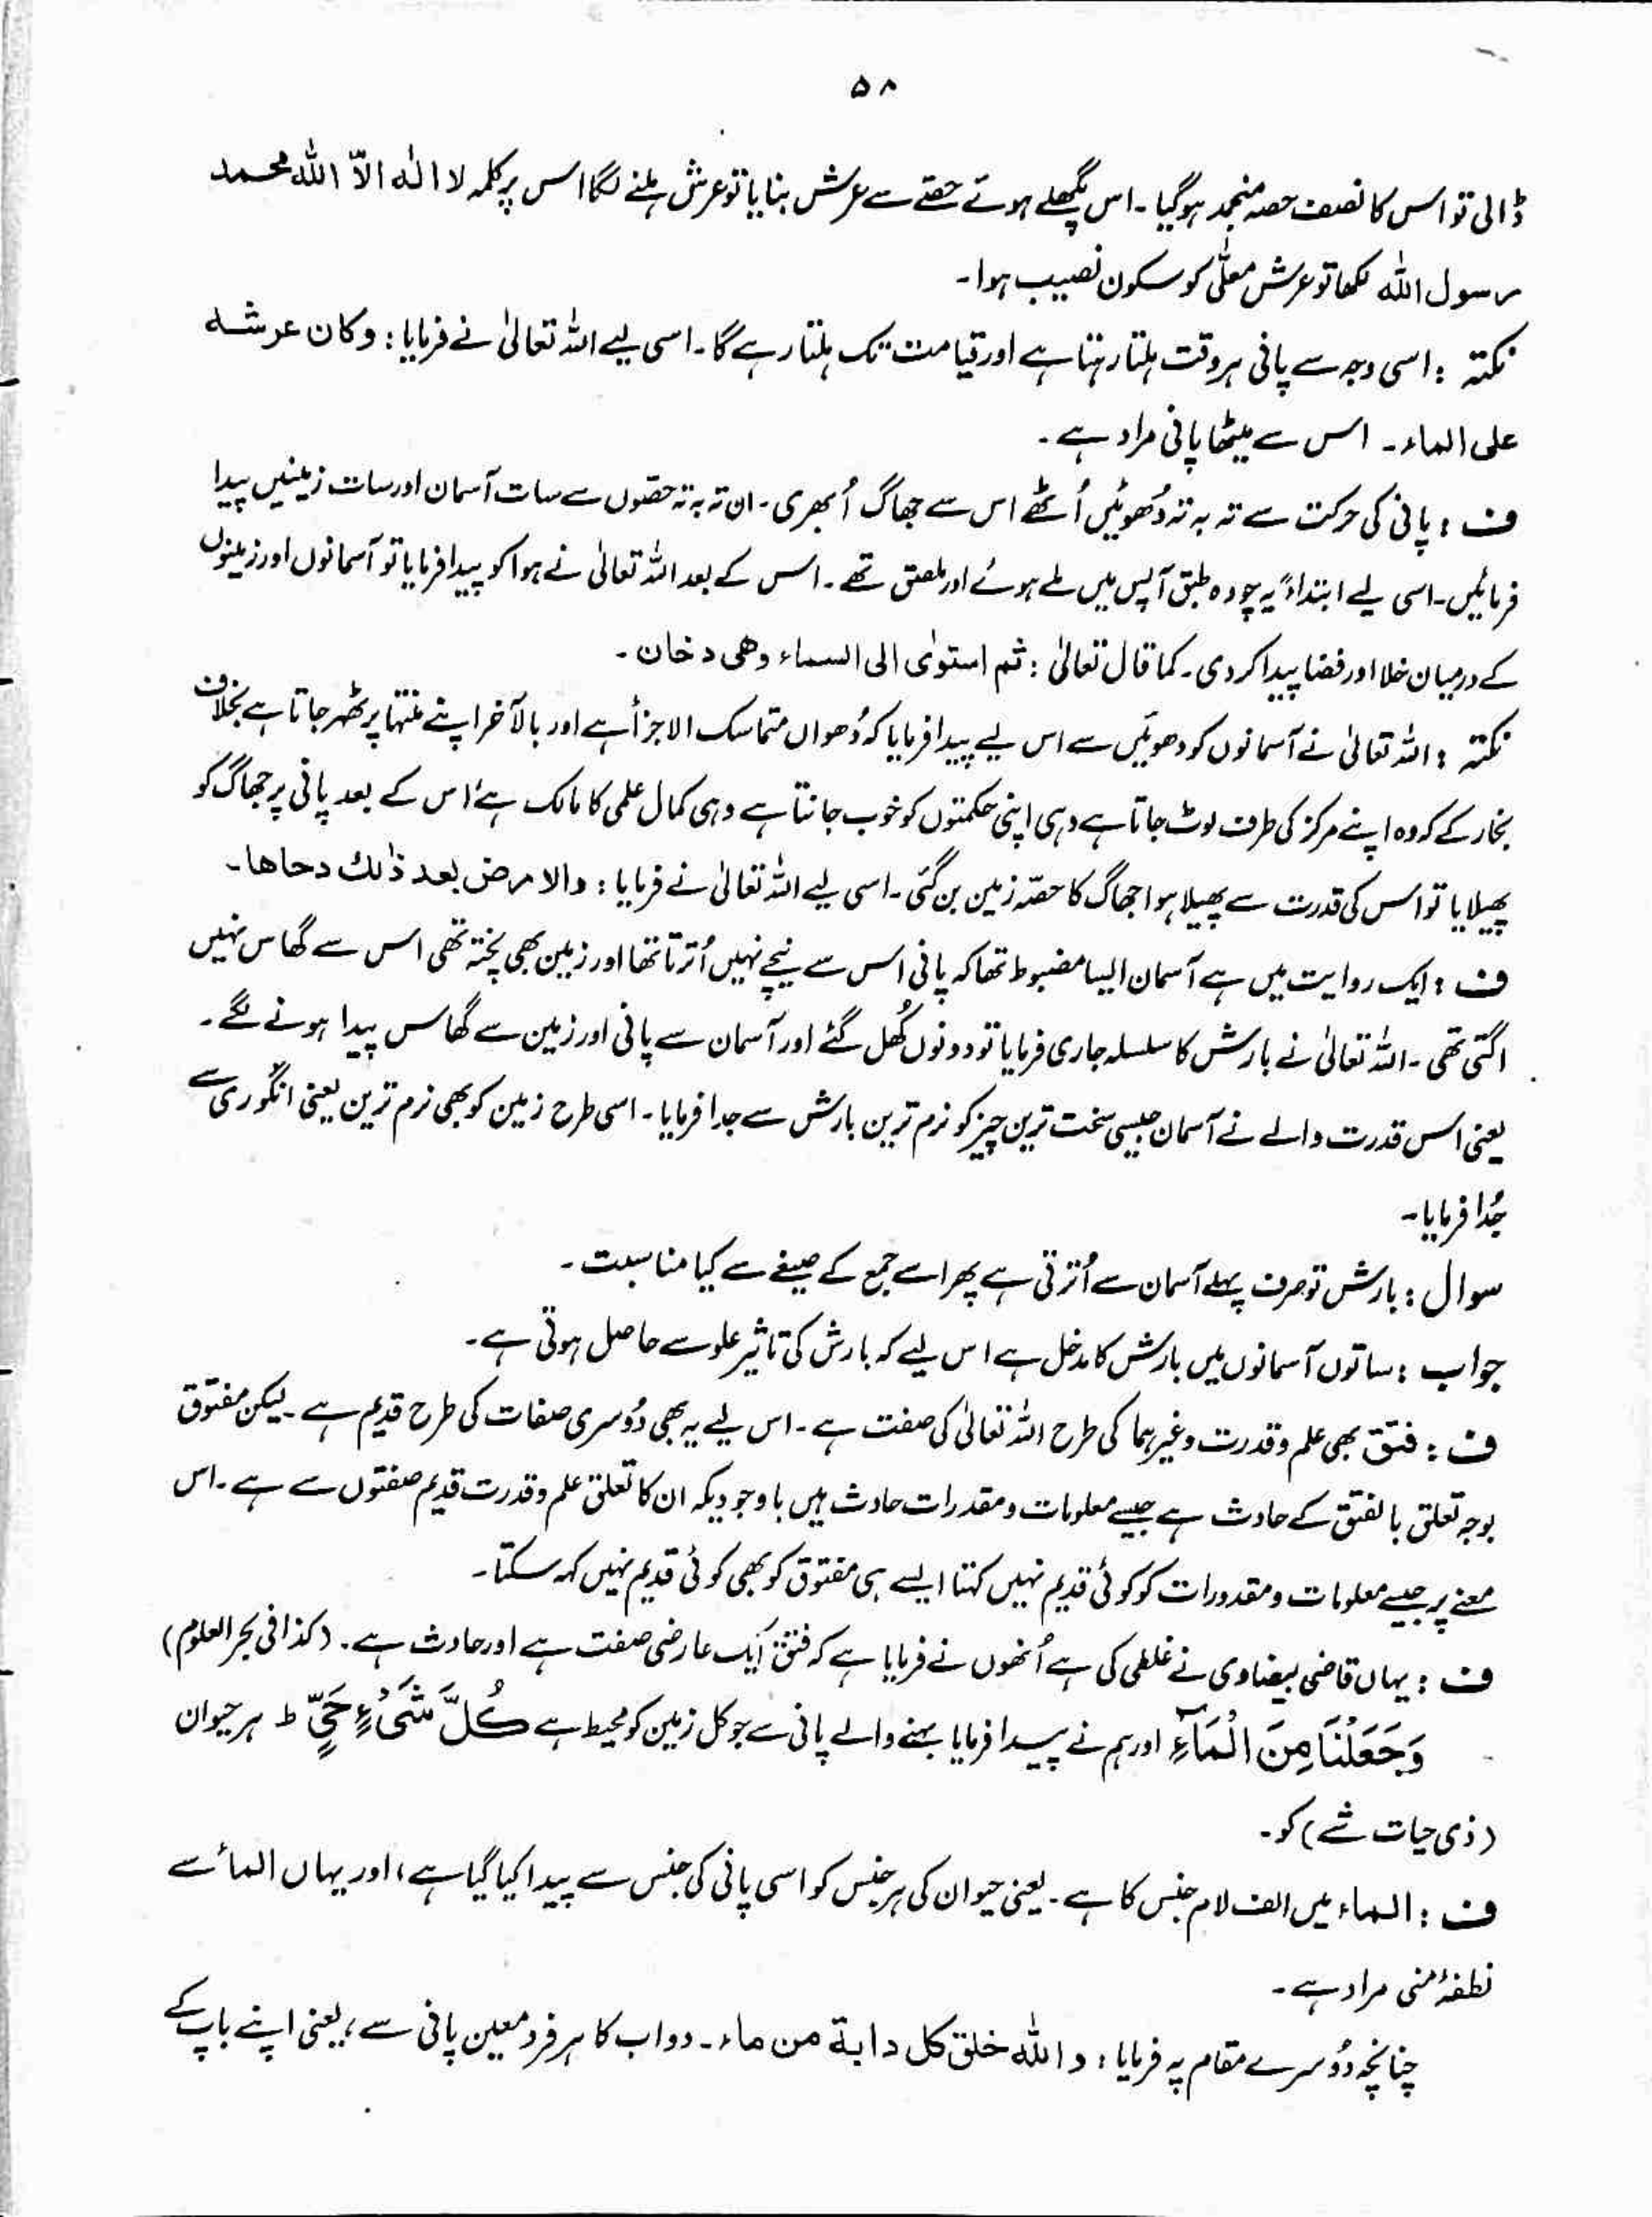 ۵۸
ڈالی تو اس کا نصف حصہ منجمد ہوگیا ۔ اس پگھلے ہوئے حصّے سے عرش بنایا تو عرش ہلنے لگا اس پر کلمہ لا الٰہ الاّ اللہ محمد
رسول اللہ لکھا تو عرش معلّٰی کو سکون نصیب ہوا ۔
نکتہ : اسی وجہ سے پانی ہر وقت ہلتا رہتا ہے اور قیامت تک ہلتا رہے گا ۔ اسی لیے اللہ تعالیٰ نے فرمایا : وکان عرشہ
علی الماء ۔ اس سے میٹھا پانی مراد ہے ۔
ف : پانی کی حرکت سے تہ بہ تہ دُھوئیں اُٹھے اس سے جھاگ اُبھری ۔ ان تہ بہ تہ حصّوں سے سات آسمان اور سات زمینیں پیدا
فرمائیں ۔ اسی لیے ابتداءً یہ چودہ طبق آپس میں ملے ہوئے اور ملصق تھے ۔ اس کے بعد اللہ تعالیٰ نے ہوا کو پیدا فرمایا تو آسمانوں اور زمینوں
کے درمیان خلا اور فضا پیدا کر دی ۔ کما قال تعالیٰ : ثم استوٰی الی السماء وھی دخان ۔
نکتہ : اللہ تعالیٰ نے آسمانوں کو دھوئیں سے اس لیے پیدا فرمایا کہ دُھواں متماسک الاجزأ ہے اور بالآخر اپنے منتہا پر ٹھہر جاتا ہے بخلاف
بخار کے کہ وہ اپنے مرکز کی طرف لوٹ جاتا ہے وہی اپنی حکمتوں کو خوب جانتا ہے وہی کمال علمی کا مالک ہے اس کے بعد پانی پر جھاگ کو
پھیلایا تو اس کی قدرت سے پھیلا ہوا جھاگ کا حصّہ زمین بن گئی ۔ اسی لیے اللہ تعالیٰ نے فرمایا : والارض بعد ذٰلک دحاھا ۔
ف : ایک روایت میں ہے آسمان ایسا مضبوط تھا کہ پانی اس سے نیچے نہیں اُترتا تھا اور زمین بھی پختہ تھی اس سے گھاس نہیں
اگتی تھی ۔ اللہ تعالیٰ نے بارش کا سلسلہ جاری فرمایا تو دونوں کُھل گئے اور آسمان سے پانی اور زمین سے گھاس پیدا ہونے لگے ۔
یعنی اس قدرت والے نے آسمان جیسی سخت ترین چیز کو نرم ترین بارش سے جدا فرمایا ۔ اسی طرح زمین کو بھی نرم ترین یعنی انگوری سے
جُدا فرمایا ۔
سوال : بارش تو صرف پہلے آسمان سے اُترتی ہے پھر اسے جمع کے صیغے سے کیا مناسبت ۔
جواب : ساتوں آسمانوں میں بارش کا مدخل ہے اس لیے کہ بارش کی تاثیر علو سے حاصل ہوتی ہے ۔
ف : فتق بھی علم و قدرت وغیرہما کی طرح اللہ تعالیٰ کی صفت ہے ۔ اس لیے یہ بھی دُوسری صفات کی طرح قدیم ہے ۔ لیکن مفتوق
بوجہ تعلق بالفتق کے حادث ہے جیسے معلومات و مقدرات حادث ہیں باوجودیکہ ان کا تعلق علم و قدرت قدیم صفتوں سے ہے ۔ اس
معنے پر جیسے معلومات و مقدورات کو کوئی قدیم نہیں کہتا ایسے ہی مفتوق کو بھی کوئی قدیم نہیں کہہ سکتا ۔
ف : یہاں قاضی بیضاوی نے غلطی کی ہے اُنھوں نے فرمایا ہے کہ فتق ایک عارضی صفت ہے اور حادث ہے ۔ (کذا فی بحر العلوم)
وَجَعَلْنَا مِنَ الْمَآءِ اور ہم نے پیدا فرمایا بہنے والے پانی سے جو کل زمین کو محیط ہے كُلَّ شَىْءٍ حَيٍّ ط ہر حیوان
(ذی حیات شے) کو ۔
ف : الماء میں الف لام جنس کا ہے ۔ یعنی حیوان کی ہر جنس کو اسی پانی کی جنس سے پیدا کیا گیا ہے ، اور یہاں المأ سے
نطفۂ منی مراد ہے ۔
چنانچہ دُوسرے مقام پہ فرمایا : واللہ خلق کل دابۃ من ماء ۔ دواب کا ہر فرد معین پانی سے ، یعنی اپنے باپ کے